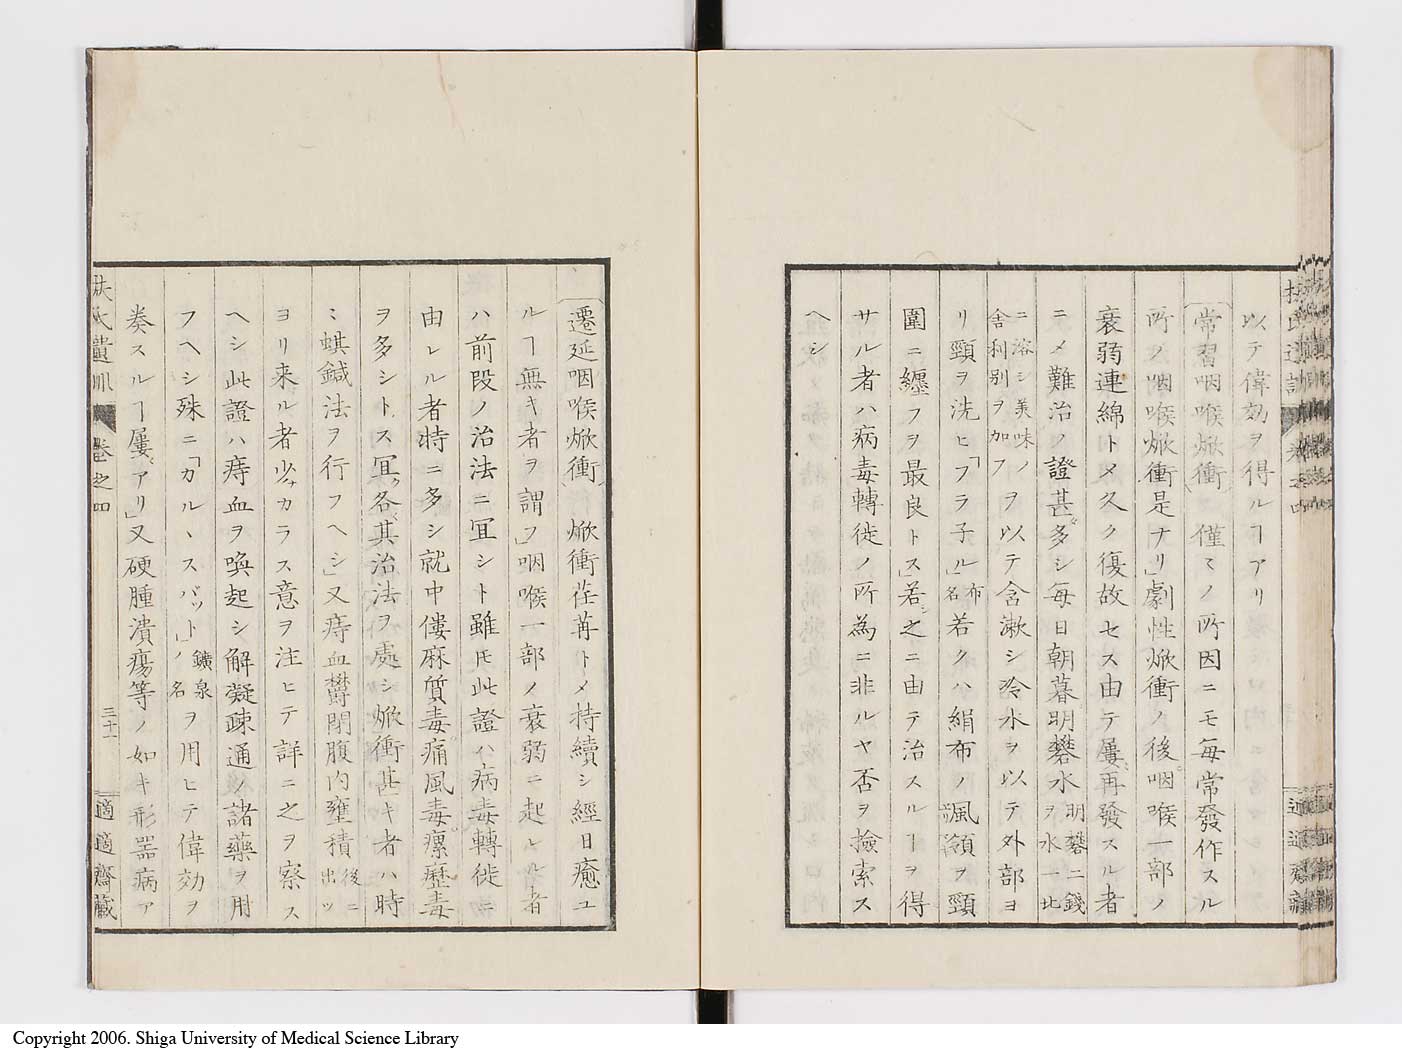 以テ偉効ヲ得ルヿアリ
常習咽喉焮衝 僅々ノ所因ニモ毎常發作スル
所ノ咽喉焮衝是ナリ」劇性焮衝ノ後咽喉一部ノ
衰弱連綿トメ久ク復故セス由テ屢再發スル者
ニメ難治ノ證甚多シ毎日朝暮明礬水 明礬二錢ヲ水一
ニ溶シ美味ノ舎利別ヲ加フ ヲ以テ含漱シ冷水ヲ以テ外部ヨ
リ頸ヲ洗ヒ「フラ子ル」布名 若クハ絹布ノ 領ヲ頸
圍ニ纏フヲ最良トス」若シ之ニ由テ治スルヿヲ得
サル者ハ病毒轉徙ノ所為ニ非ルヤ否ヲ撿索ス
ヘシ
遷延咽喉焮衝 焮衝荏苒トメ持續シ經日癒ユ
ルヿ無キ者ヲ謂フ」咽喉一部ノ衰弱ニ起ルル者
ハ前段ノ治法ニ冝シト雖𪜈此證ハ病毒轉徙ニ
由レル者特ニ多シ就中僂麻質毒痛風毒瘰癧毒
ヲ多シトス冝各其治法ヲ處シ焮衝甚キ者ハ時
ニ蜞鍼法ヲ行フヘシ」又痔血欝閉腹内壅積 後ニ出ツ
ヨリ来ル者少カラス意ヲ注ヒテ詳ニ之ヲ察ス
ヘシ此證ハ痔血ヲ喚起シ解凝疎通ノ諸藥ヲ用
フヘシ殊ニ「カルヽスバット」鑛泉ノ名 ヲ用ヒテ偉効ヲ
奏スルヿ屢アリ」又硬腫潰瘍等ノ如キ形器病ア
扶氏遺訓 卷之四 三十一 適適齋藏
Copyright 2006. Shiga University of Medical Science Library